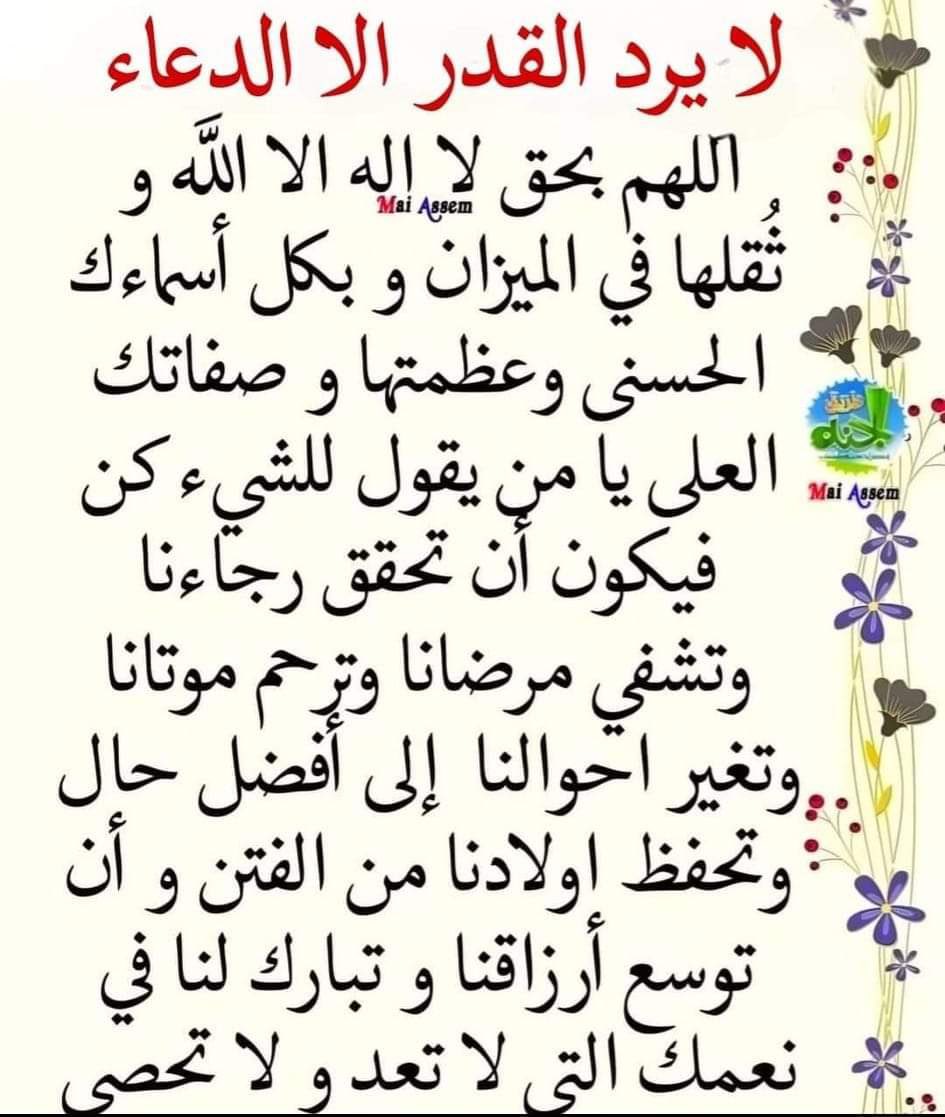 لا يرد القدر الا الدعاء
اللهم بحق لا إله الا اللَّه و
Mai Assem
ثُقلها في الميزان و بكل أسماءك
الحسنى وعظمتها و صفاتك
العلى يا من يقول للشيء كن
فيكون أن تحقق رجاءنا
وتشفي مرضانا وترحم موتانا
وتغير احوالنا إلى أفضل حال
وتحفظ اولادنا من الفتن و أن
توسع أرزاقنا و تبارك لنا في
نعمك التي لا تعد و لا تحصى
طريق
الجنه
Mai Assem